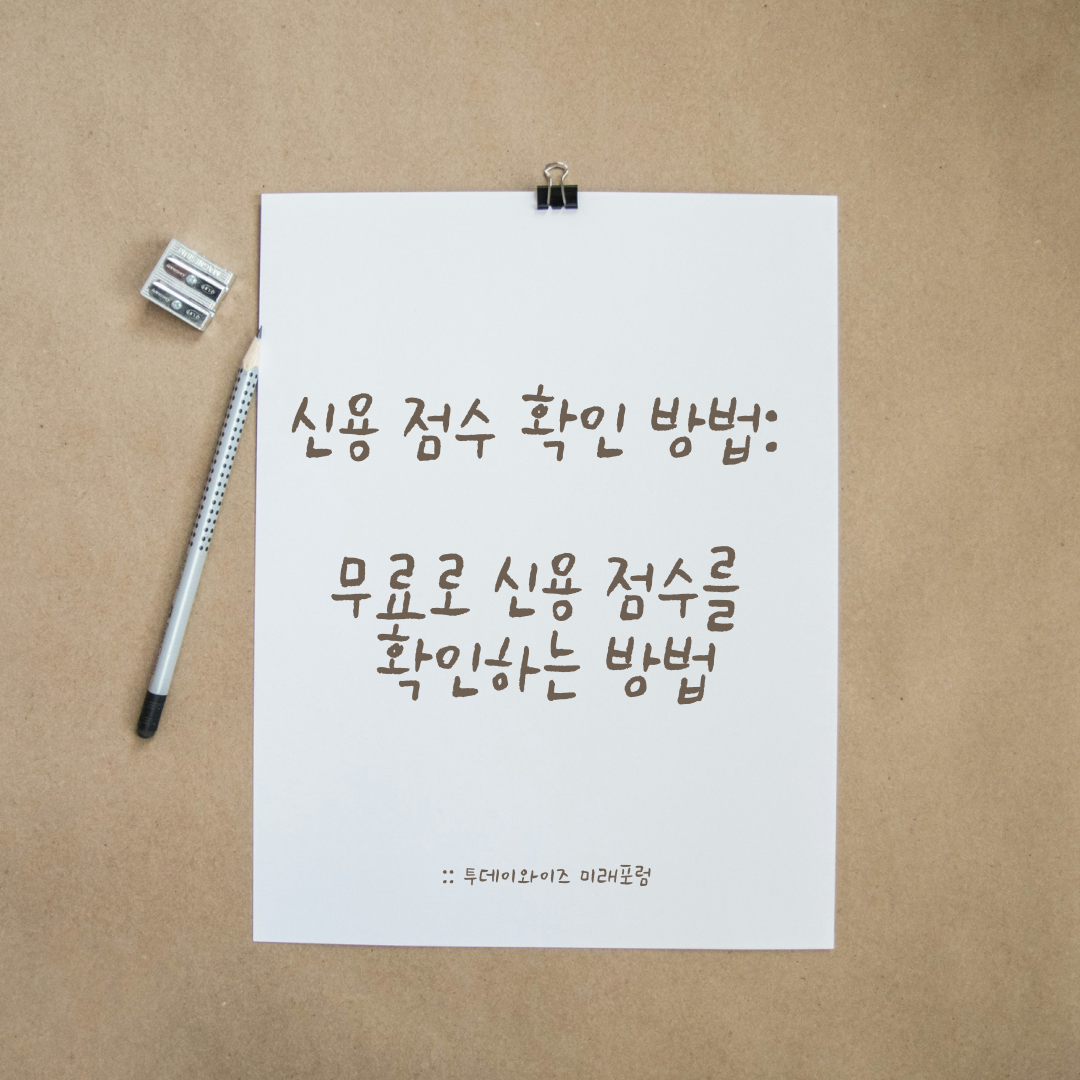 신용 점수 확인 방법:
무료로 신용 점수를
확인하는 방법
:: 투데이와이즈 미래포럼